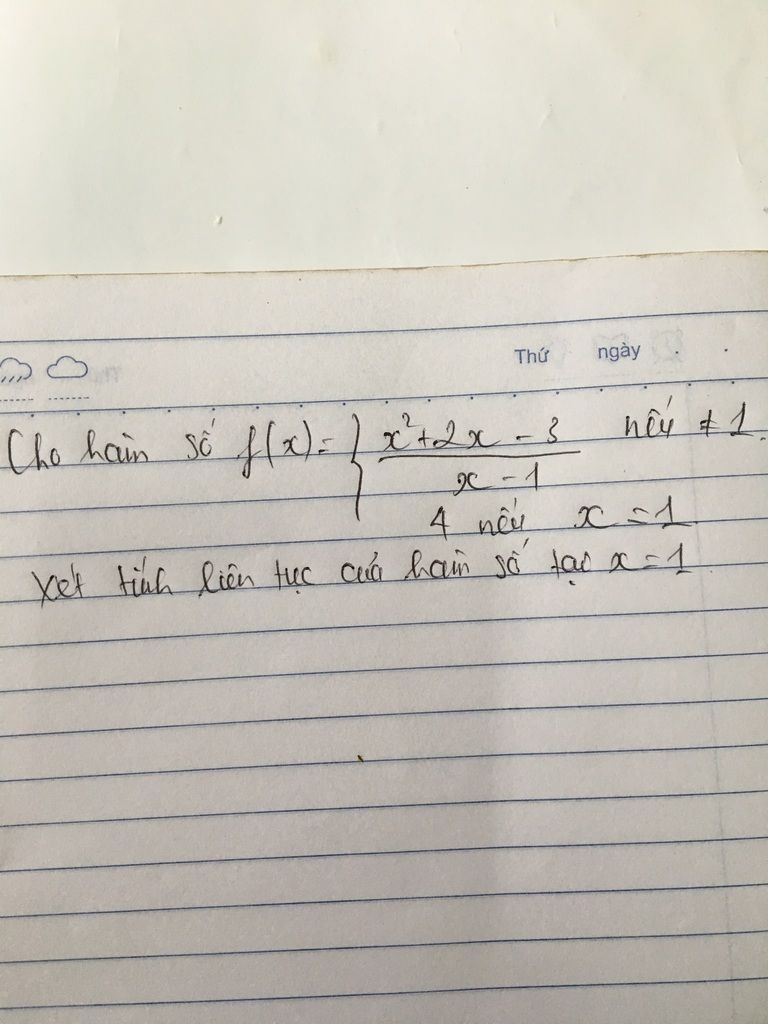 Thứ ngày
Cho hàm số f(x) = { x²+2x - 3 / x - 1 nếu ≠ 1.
4 nếu x = 1
Xét tính liên tục của hàm số tại x = 1